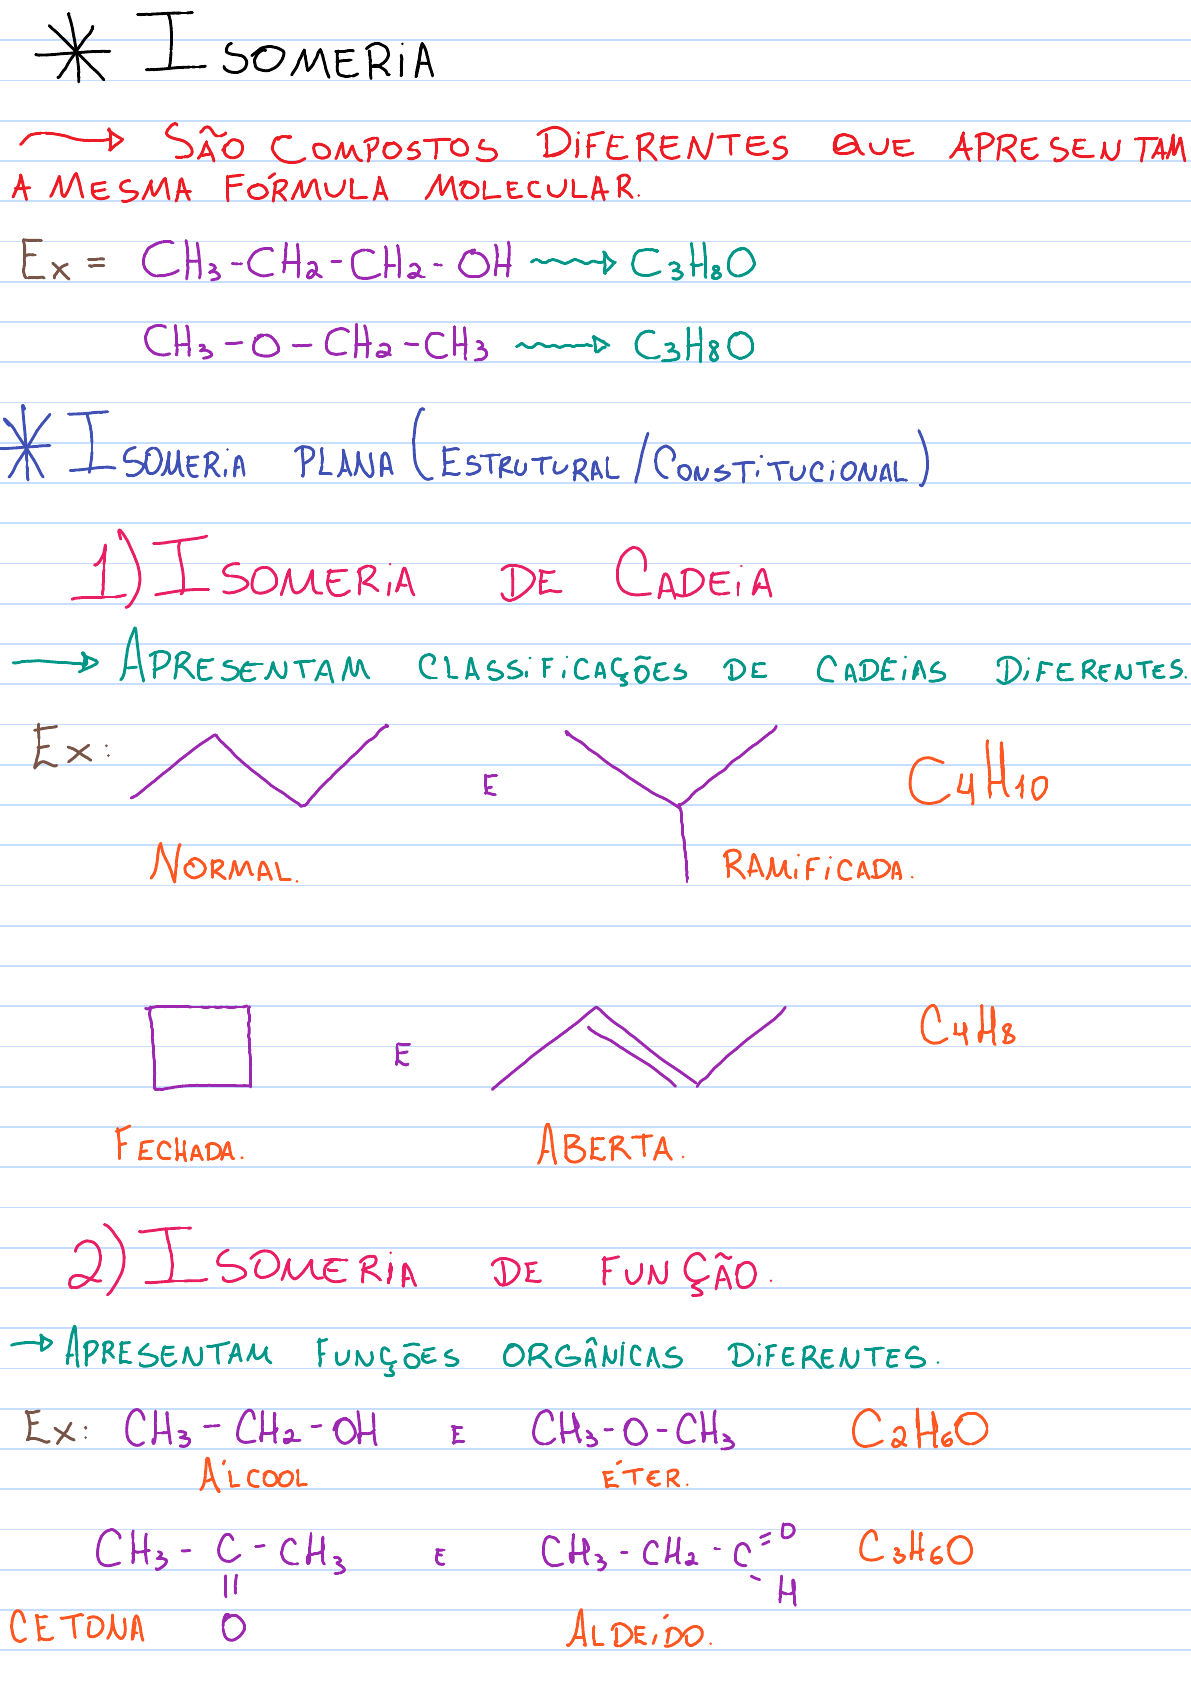 * ISOMERIA
→ SÃO COMPOSTOS DIFERENTES QUE APRESENTAM
A MESMA FÓRMULA MOLECULAR.
Ex = CH3-CH2-CH2-OH → C3H8O
CH3-O-CH2-CH3 → C3H8O
* ISOMERIA PLANA (ESTRUTURAL/CONSTITUCIONAL)
1) ISOMERIA DE CADEIA
→ APRESENTAM CLASSIFICAÇÕES DE CADEIAS DIFERENTES.
Ex: E C4H10
NORMAL. RAMIFICADA.
E C4H8
FECHADA. ABERTA.
2) ISOMERIA DE FUNÇÃO.
→ APRESENTAM FUNÇÕES ORGÂNICAS DIFERENTES.
Ex: CH3-CH2-OH E CH3-O-CH3 C2H6O
ÁLCOOL ÉTER.
CH3-C-CH3 E CH3-CH2-C=O C3H6O
|| - H
CETONA O ALDEÍDO.